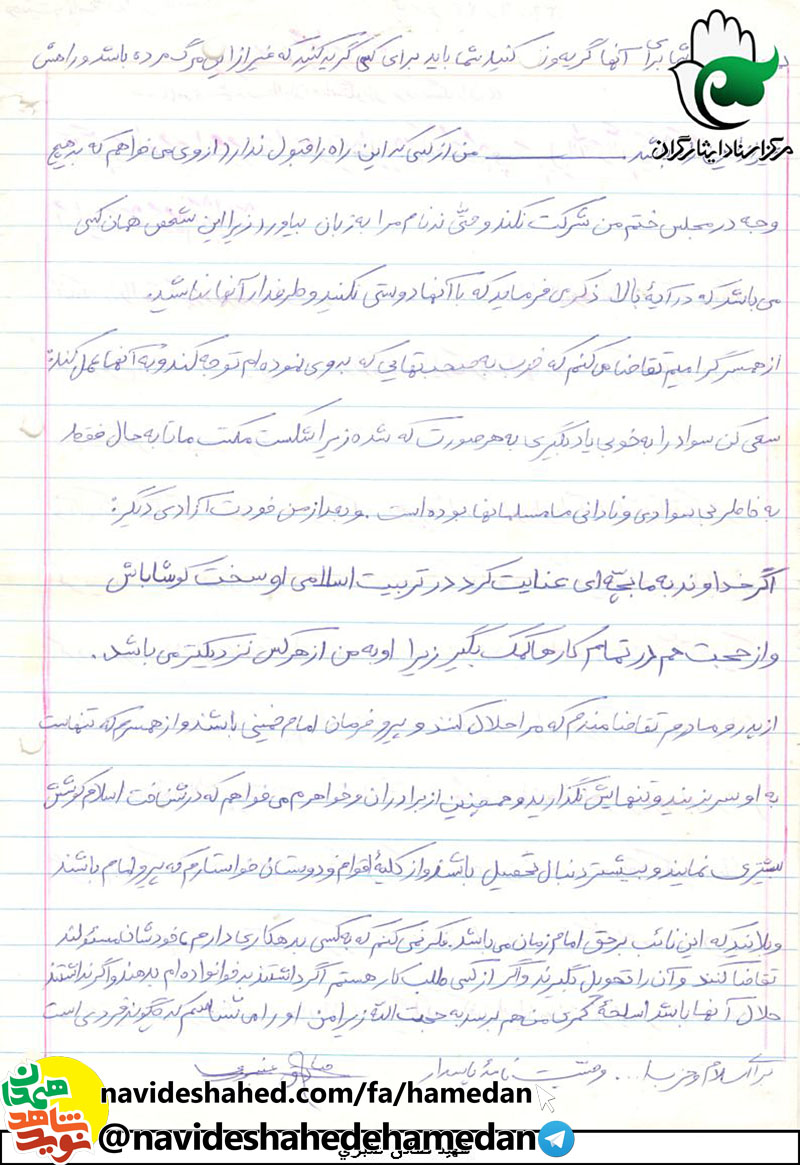 برای آنها گریه و ... کنید شما باید برای کسی گریه کنید که غیر از این مرگ مرده باشد و راهش
مرکز اسناد ایثارگران
باشد ـــــــــ من از کسی که این راه را قبول ندارد از وی می خواهم که به هیچ
وجه در مجلس ختم من شرکت نکند و حتّی نام مرا به زبان نیاورد زیرا این شخص همان کسی
می باشد که در آیهٔ بالا ذکر می فرماید که با آنها دوستی نکنید و طرفدار آنها نباشید.
از همسر گرامیم تقاضا می کنم که خوب به صحبتهایی که بروی نموده ام توجه کند و به آنها عمل کند:
سعی کن سواد را به خوبی یاد بگیری به هر صورت که شده زیرا شکست مکتب ما تا به حال فقط
به خاطر بی سوادی و نادانی ما مسلمانها بوده است. و بعد از من خودت آزادی دیگر:
اگر خداوند به ما بچّه ای عنایت کرد در تربیت اسلامی او سخت کوشا باش
و از حجت هم در تمام کارها کمک بگیر زیرا او به من از هر کس نزدیکتر می باشد.
از پدر و مادرم تقاضامندم که مرا حلال کنند و پیرو فرمان امام خمینی باشند و از همسرم که تنهاست
به او سر بزنید و تنهایش نگذارید و همچنین از برادران و خواهرم می خواهم که در شناخت اسلام کوشش
بیشتری نمایند و بیشتر دنبال تحصیل باشند و از کلیهٔ اقوام و دوستان خواستارم که پیرو امام باشند
و بدانید که این نائب بر حق امام زمان می باشد. فکر نمی کنم که به کسی بدهکاری دارم، خودشان مسئولند
تقاضا کنند و آن را تحویل گیرند و اگر از کسی طلب کار هستم اگر داشتند به خانواده ام بدهند و اگر نداشتند
حلال آنها باشد اسلحهٔ کمری من هم برسد به حجت الله زیرا من او را می شناسم که چگونه فردی است
وصیت نامهٔ پاسدار
navideshahed.com/fa/hamedan
@navideshahedehamedan
نوید شاهد همدان